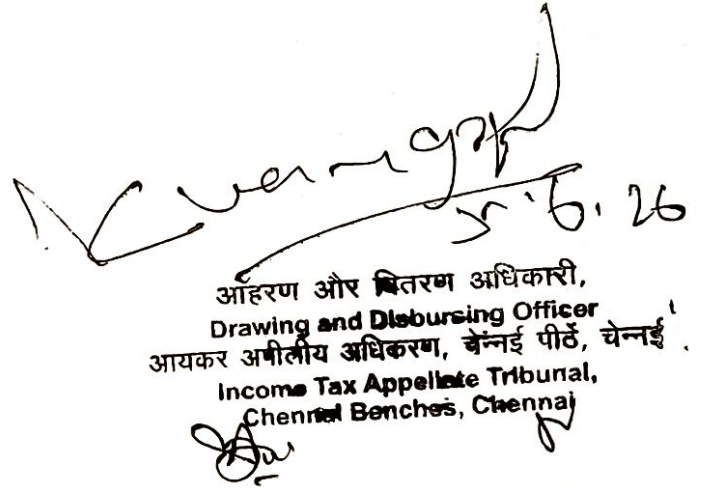 5.6.26
आहरण और वितरण अधिकारी,
Drawing and Disbursing Officer
आयकर अपीलीय अधिकरण, चेन्नई पीठें, चेन्नई.
Income Tax Appellate Tribunal,
Chennai Benches, Chennai